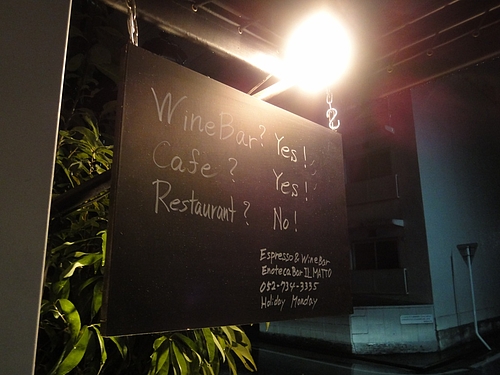 WineBar? Yes!
Cafe? Yes!
Restaurant? No!
Espresso & WineBar
EnotecaBar IL MATTO
052-734-3335
Holiday Monday